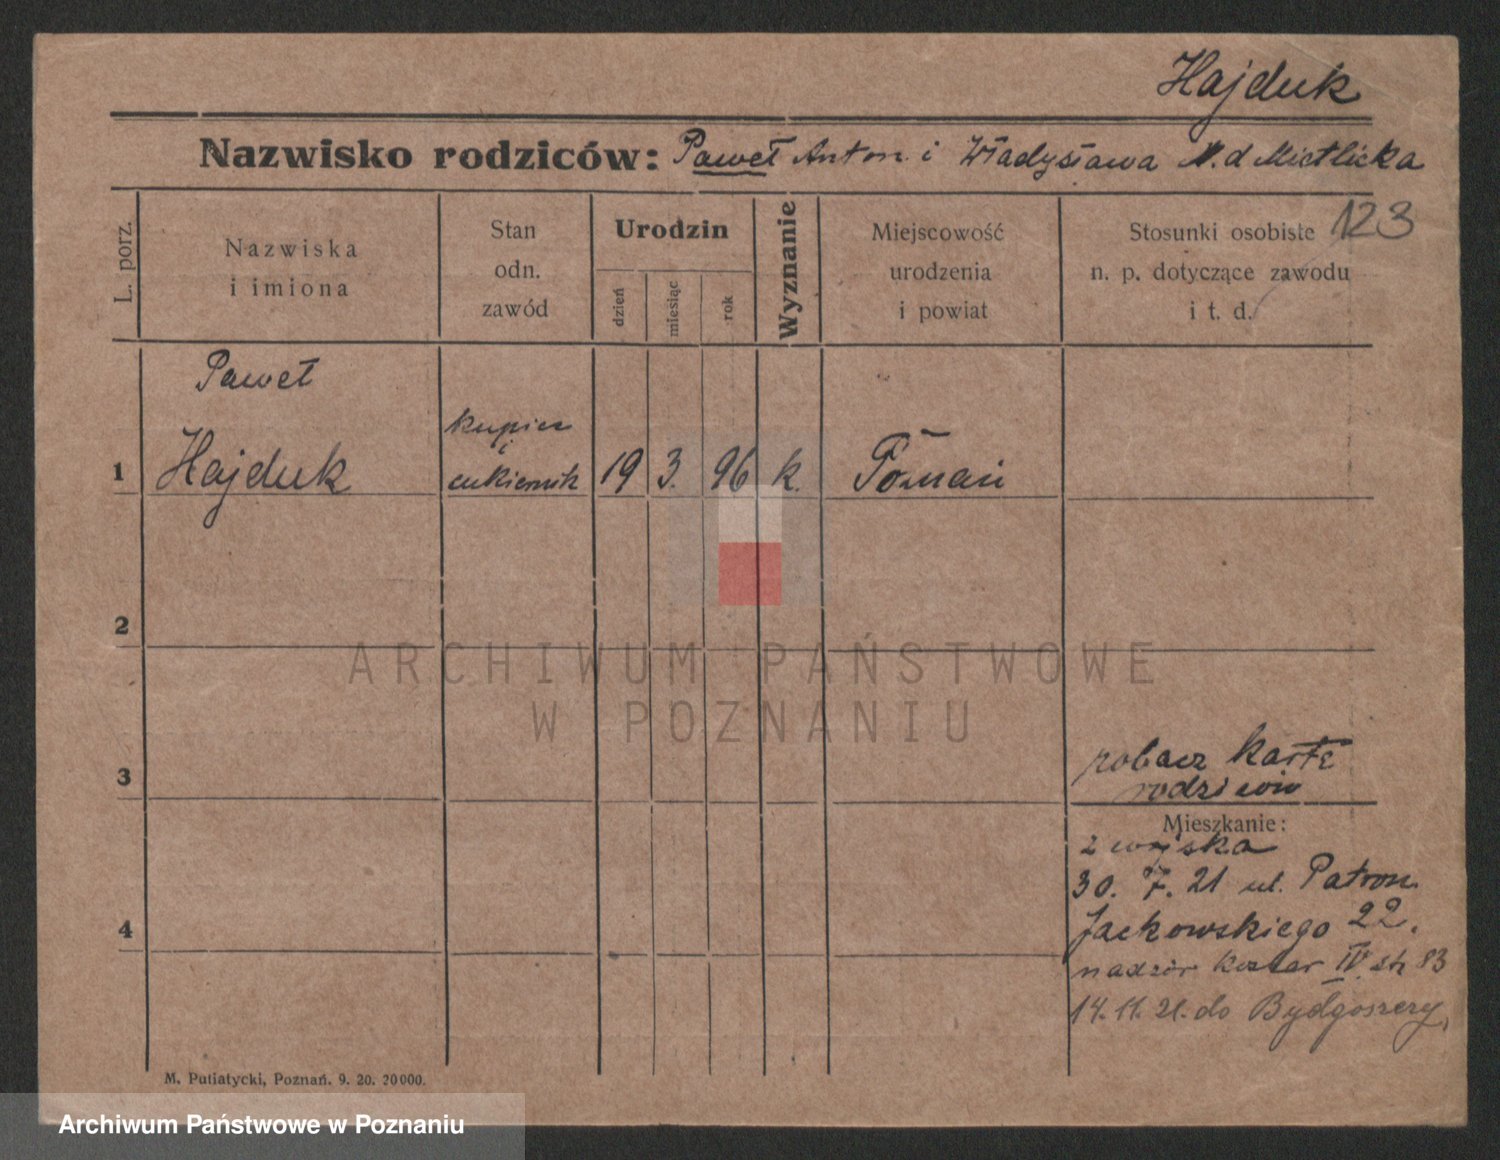 Hajduk
Nazwisko rodziców: Paweł Anton. i Władysława
L. porz.
Nazwiska
i imiona
Stan
odn.
zawód
Urodzin
dzień
miesiąc
rok
Wyznanie
Miejscowość
urodzenia
i powiat
Stosunki osobiste 123
n. p. dotyczące zawodu
i t. d.
Paweł
1 Hajduk
kupiec
i
cukiernik
19 3. 96 k. Poznań
2
3
zobacz kartę
rodziców
Mieszkanie:
z wojska
30. 7. 21 ul. Patron
Jackowskiego 22.
4
nadzór koszar IV. 83
14. 11. 21. do Bydgoszczy
M. Putiatycki, Poznań. 9. 20. 20000.
ARCHIWUM PAŃSTWOWE
W POZNANIU
Archiwum Państwowe w Poznaniu